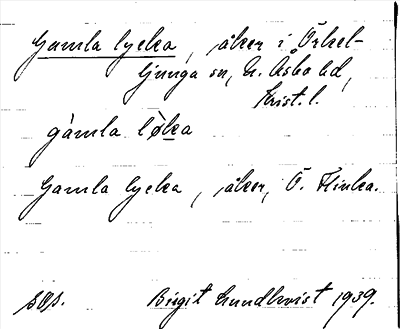 Gamla lycka, åker i Örkel-
ljunga sn, N. Åsbo hd,
Krist. l.
gàmla lø̀ka
Gamla lycka, åker, Ö. Flinka.
sOs. Birgit Lundkvist 1939.